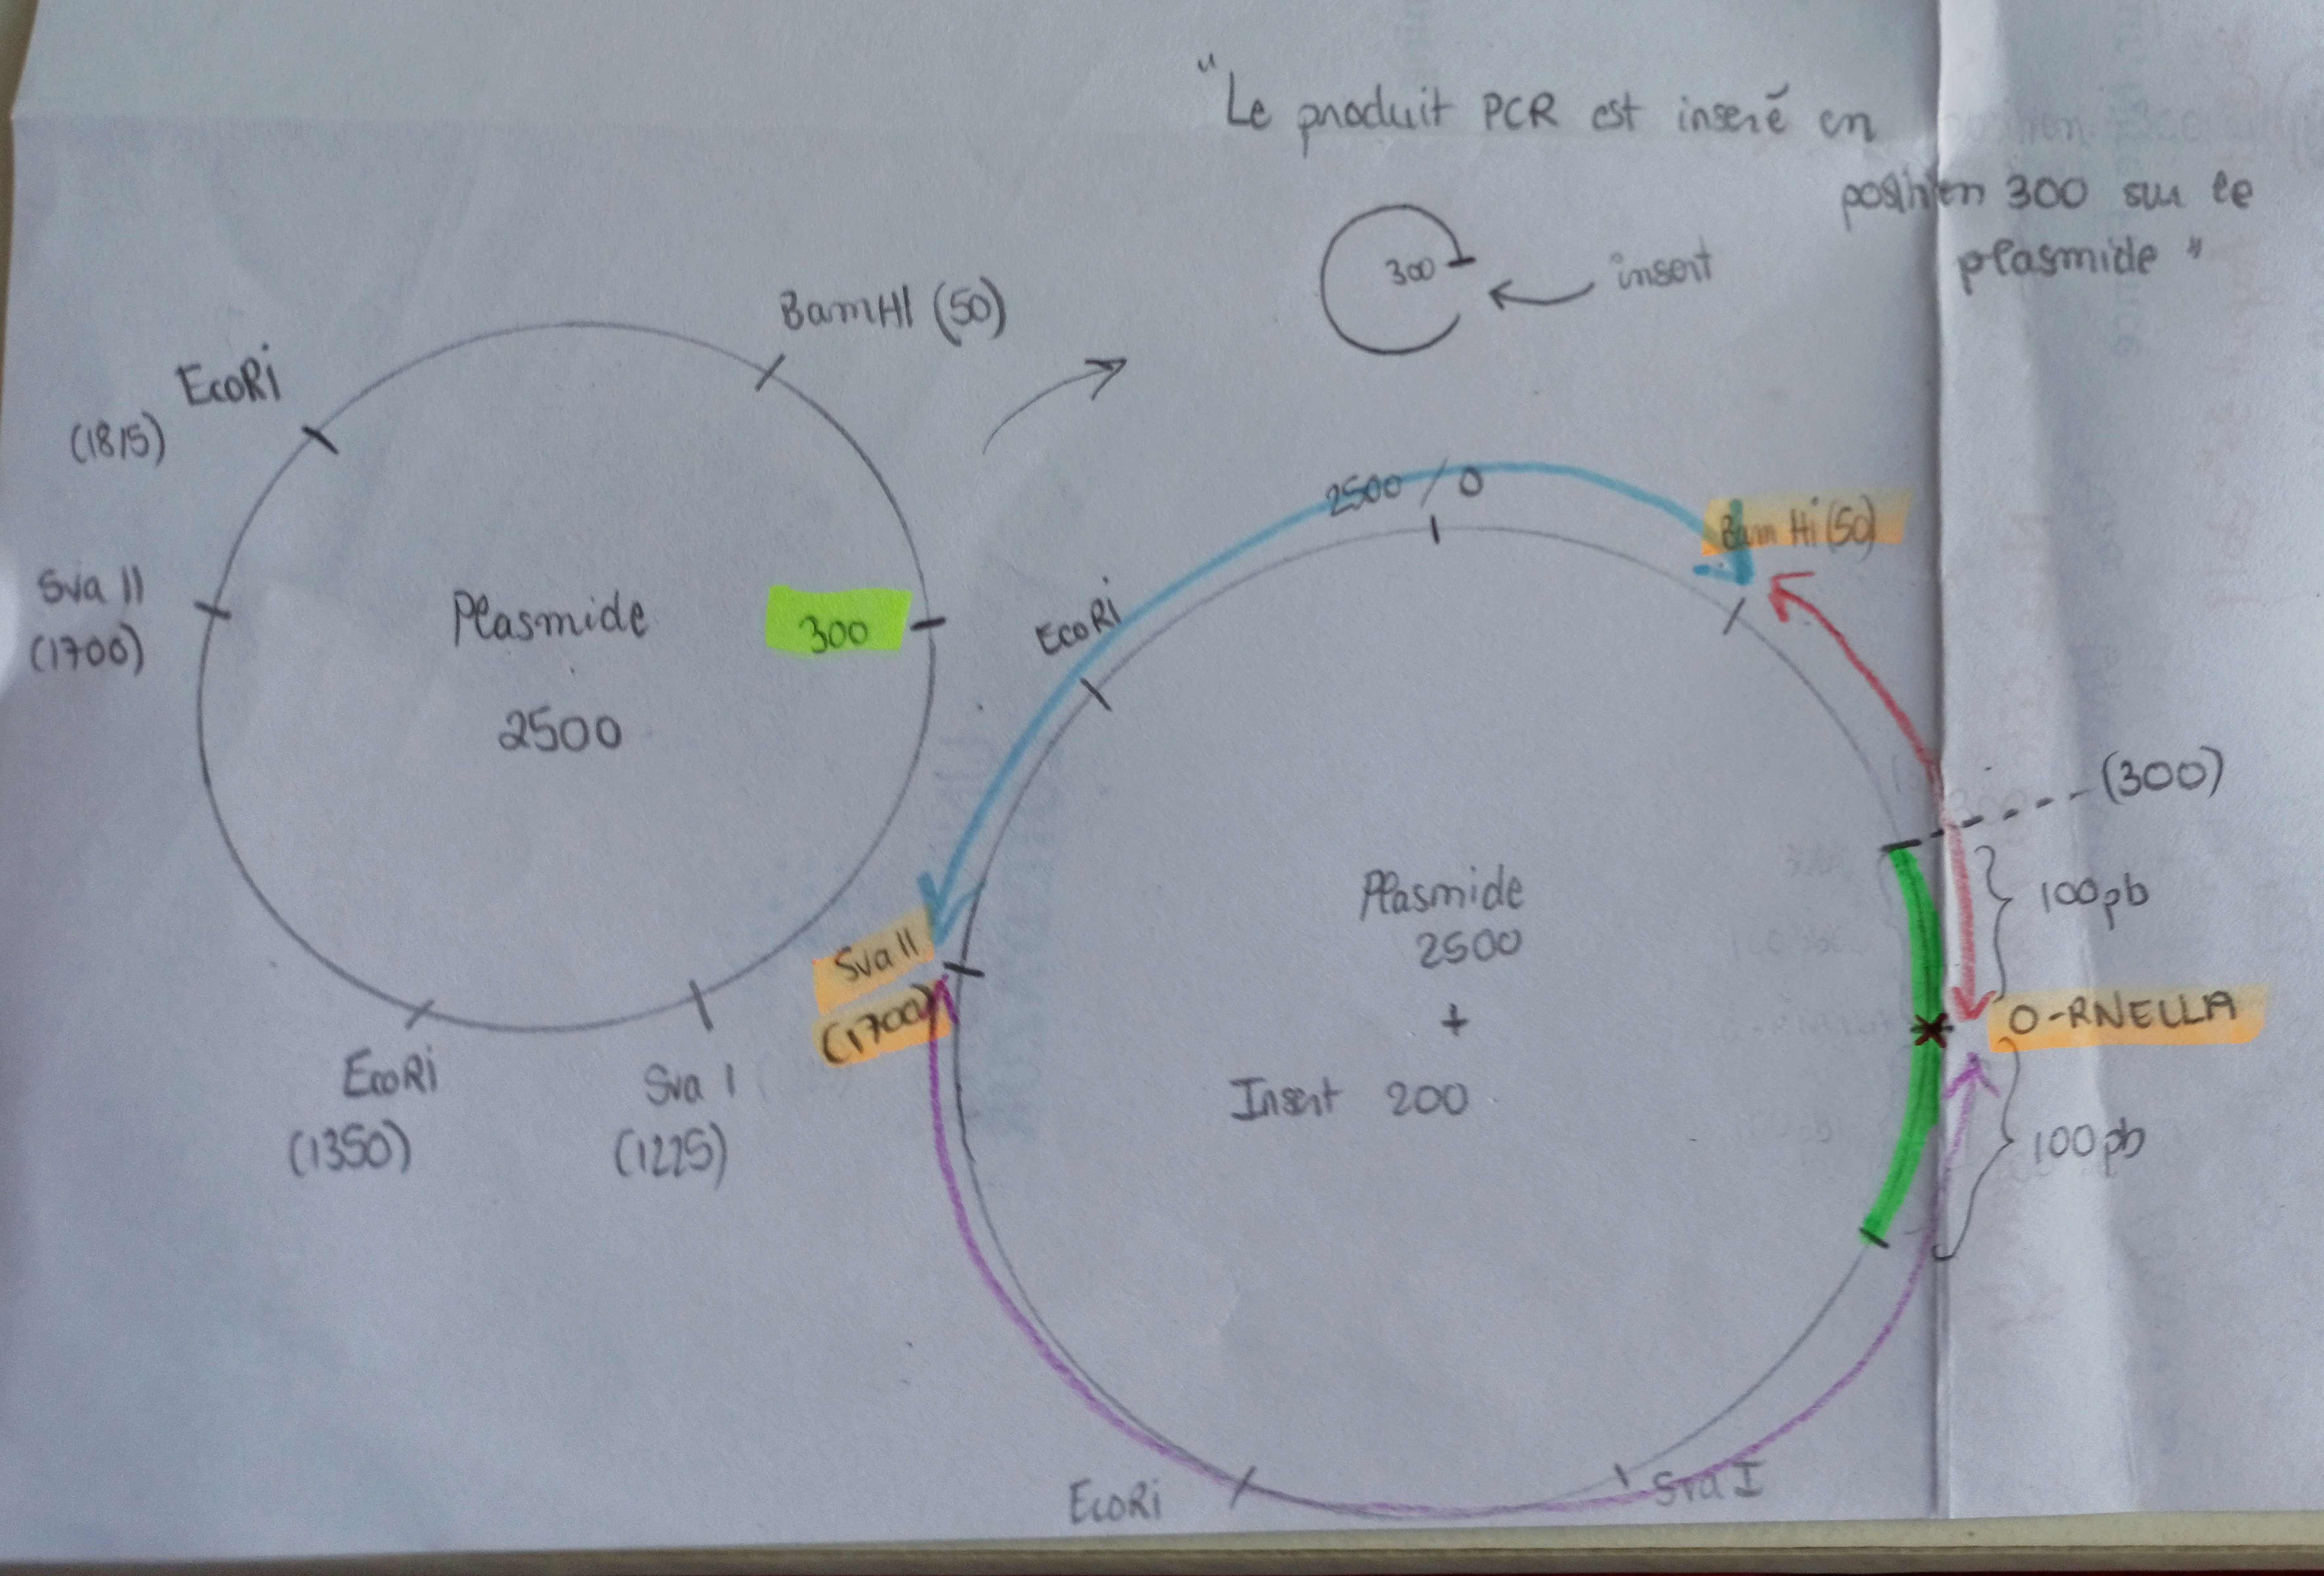 "Le produit PCR est inseré en
position 300 sur le
plasmide"
300
insert
BamHI (50)
EcoRi
(1815)
Sva II
(1700)
Plasmide
2500
300
EcoRi
(1350)
Sva I
(1225)
2500 / 0
Bam Hi (50)
EcoRi
(300)
100pb
Plasmide
2500
+
Insert 200
Sva II
(1700)
O-RNELLA
100pb
EcoRi
Sva I